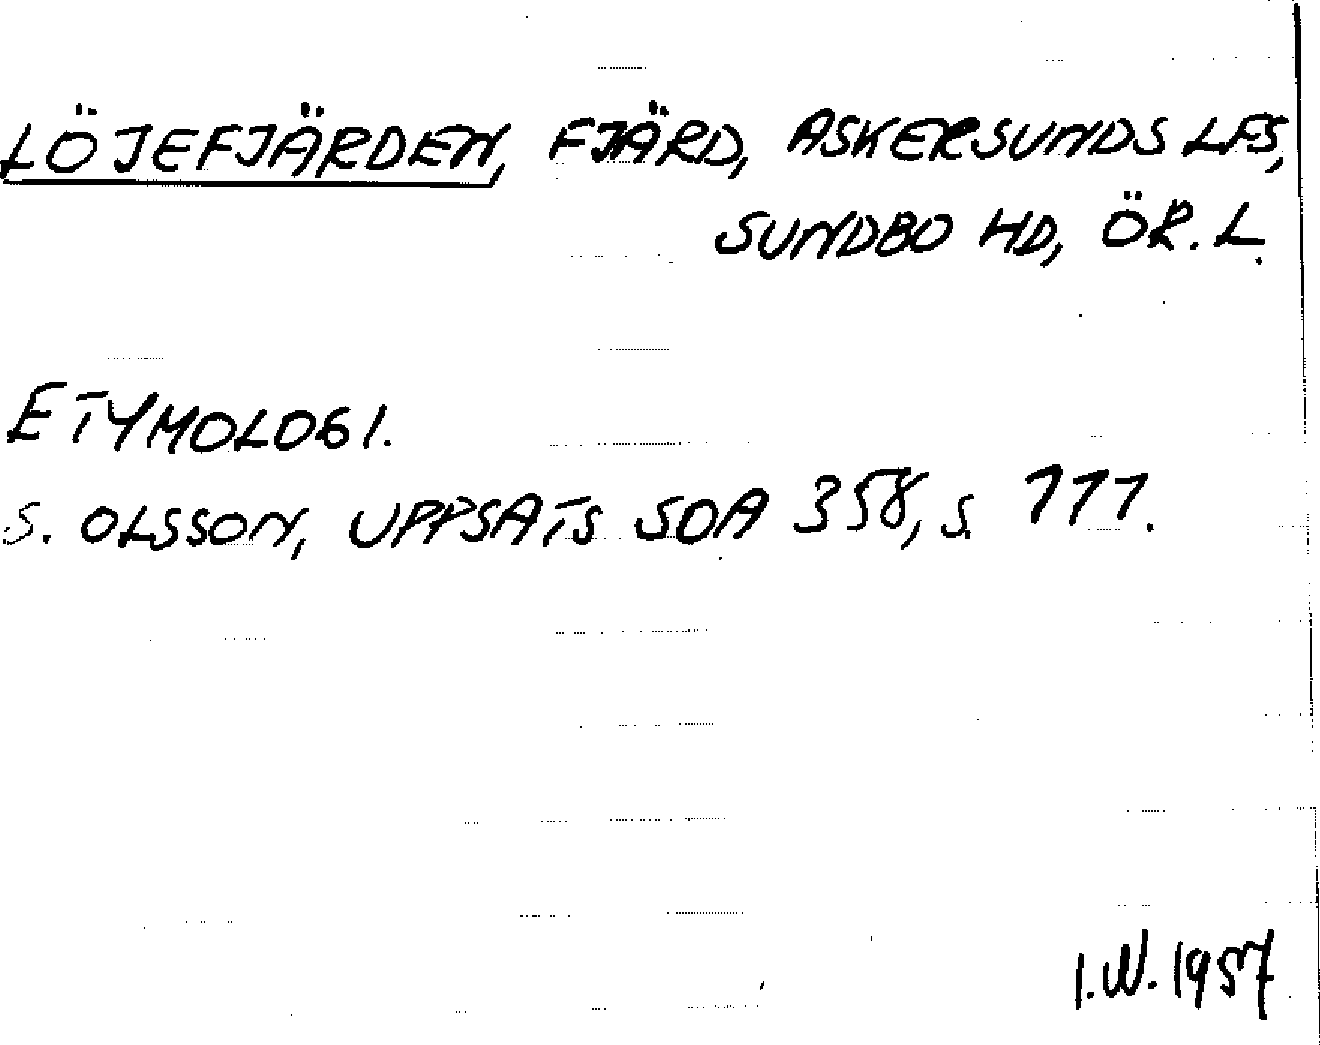 LÖJEFJÄRDEN, FJÄRD, ASKERSUNDS LFS,
SUNDBO HD, ÖR. L.
ETYMOLOGI.
S. OLSSON, UPPSATS SOA 358, S. 111.
I.W. 1957